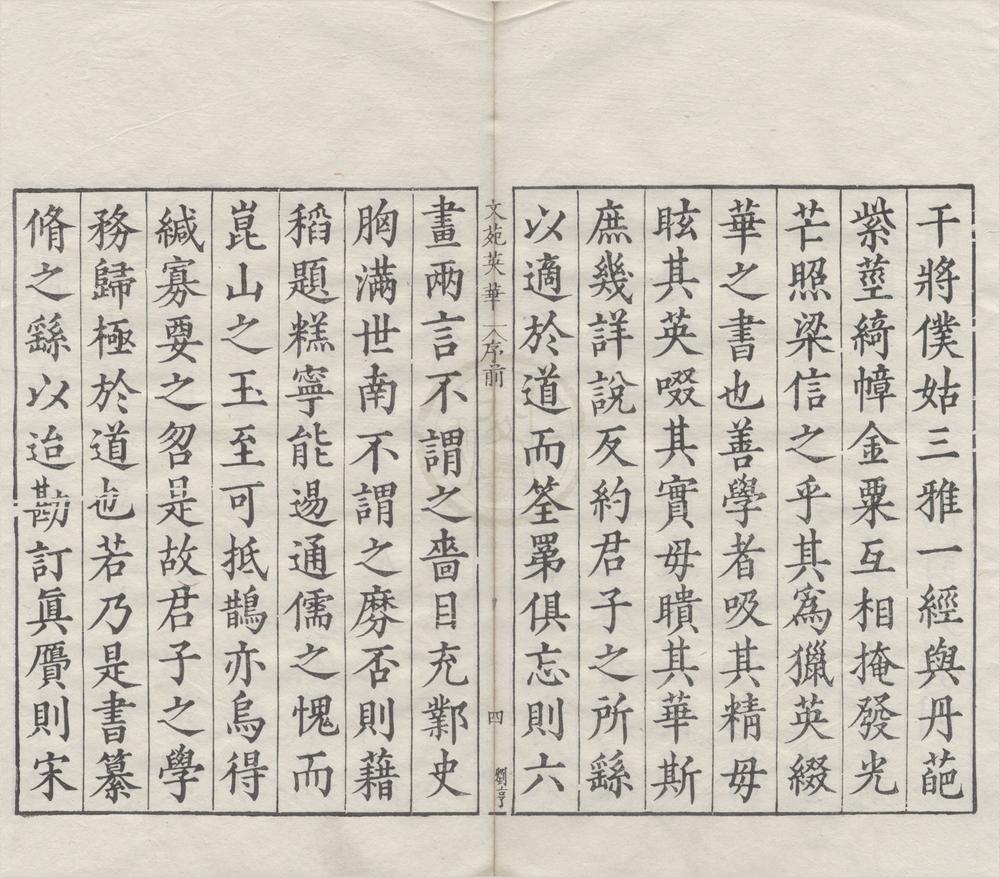 干將僕姑三雅一經與丹葩
紫莖綺幛金粟互相掩發光
芒照梁信之乎其爲獵英綴
華之書也善學者吸其精毋
眩其英啜其實毋瞶其華斯
庶幾詳說反約君子之所繇
以適於道而筌罤俱忘則六
文苑英華 序前 四 劉亨
畫兩言不謂之嗇目充鄴史
胸滿世南不謂之靡否則藉
稻題糕寧能逿通儒之愧而
崑山之玉至可抵鵲亦烏得
緘寡要之詺是故君子之學
務歸極於道也若乃是書纂
脩之繇以迨勘訂眞贗則宋